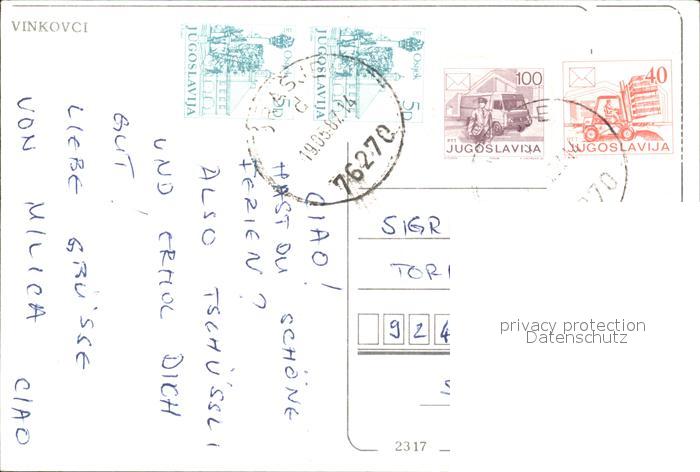 VINKOVCI
JUGOSLAVIJA
Osijek
5D
JUGOSLAVIJA
Osijek
5D
100
PTT JUGOSLAVIJA
40
JUGOSLAVIJA
76270
CIAO!
HAST DU SCHÖNE
FERIEN?
ALSO TSCHÜSSLI
UND ERHOL DICH
GUT!
LIEBE GRÜSSE
VON MILICA CIAO
SIGR
TORI
924
privacy protection
Datenschutz
2317